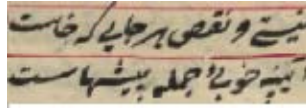 نیستی و نقص هر جایی که خاست
آینه خوبی جمله پیشهاست